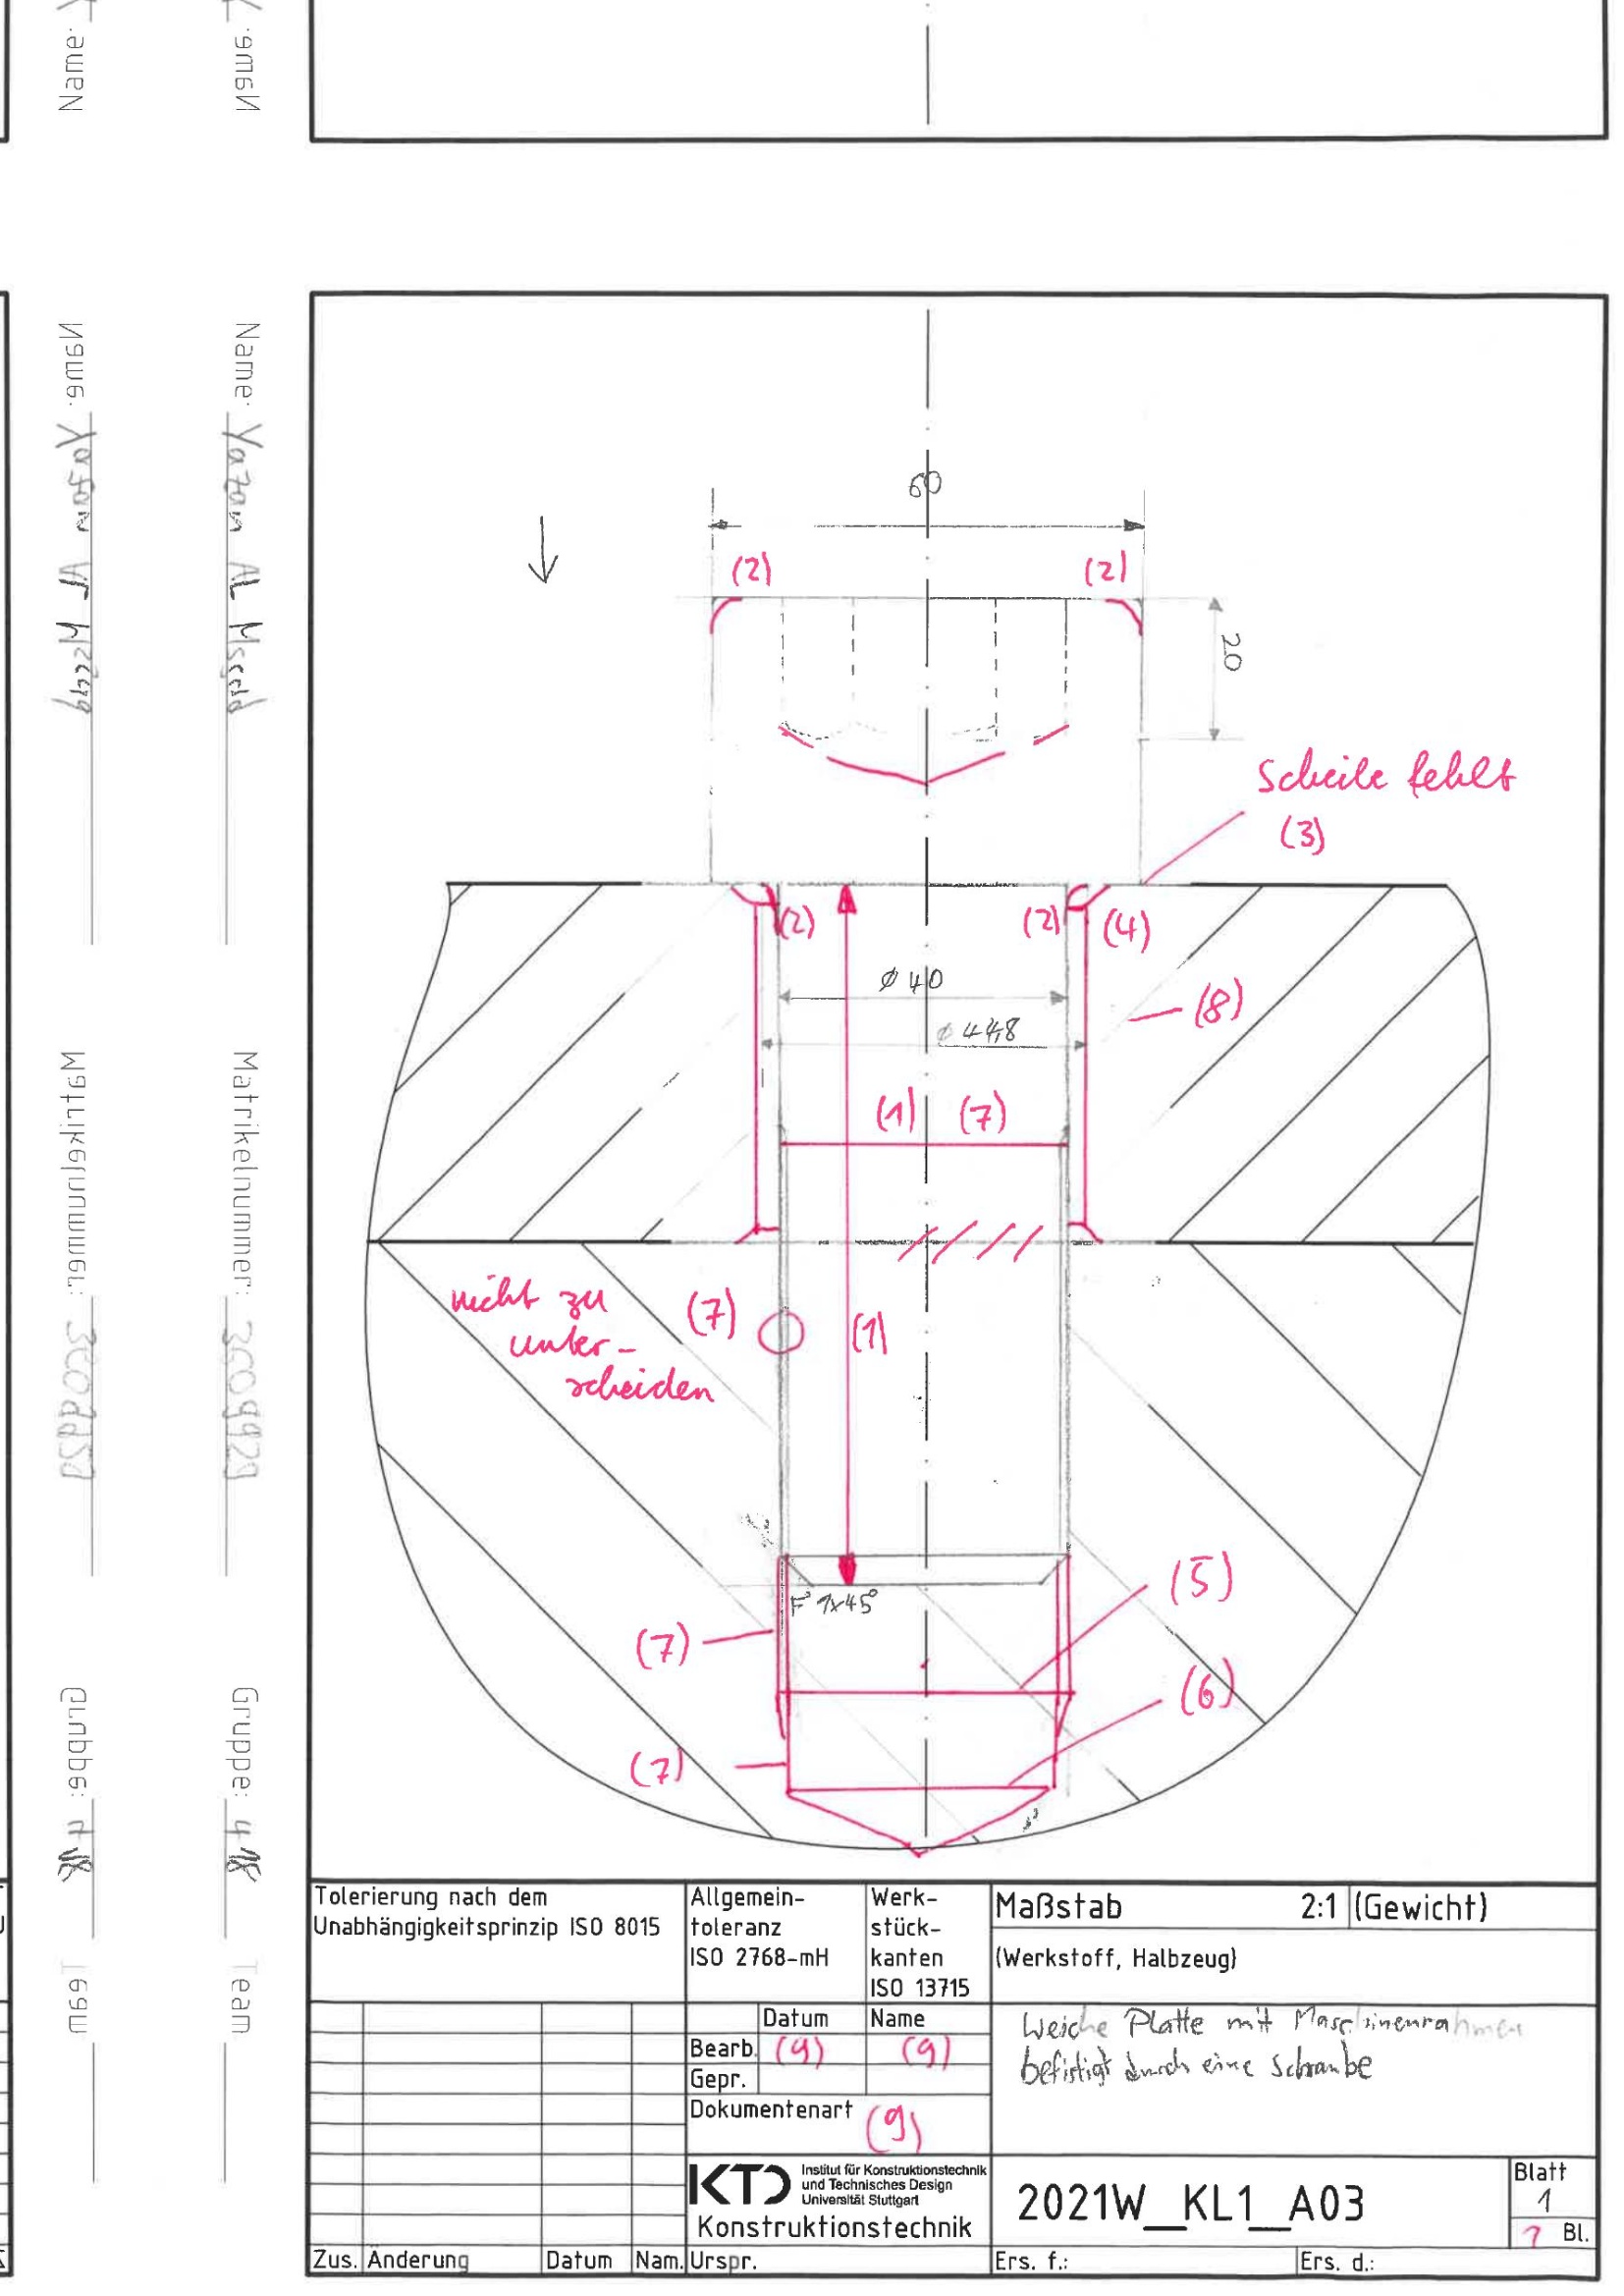 Name:
Name:
Name: Yazan AL
Matrikelnummer:
Gruppe: 4
Team
60
(2)
(2)
20
Scheibe fehlt
(3)
(2)
(2)
(4)
ø 40
(8)
ø 44,8
(1)
(7)
nicht zu
unter-
scheiden
(7)
(1)
F 1x45°
(5)
(7)
(6)
(7)
Tolerierung nach dem
Unabhängigkeitsprinzip ISO 8015
Allgemein-
toleranz
ISO 2768-mH
Werk-
stück-
kanten
ISO 13715
Maßstab 2:1 (Gewicht)
(Werkstoff, Halbzeug)
Datum Name
Bearb. (9) (9)
Gepr.
Dokumentenart
(9)
Weiche Platte mit Maschinenrahmen
befistigt durch eine Schraube
KTD Institut für Konstruktionstechnik
und Technisches Design
Universität Stuttgart
Konstruktionstechnik
2021W_KL1_A03
Blatt
1
1 Bl.
Zus. Änderung Datum Nam. Urspr. Ers. f.: Ers. d.: